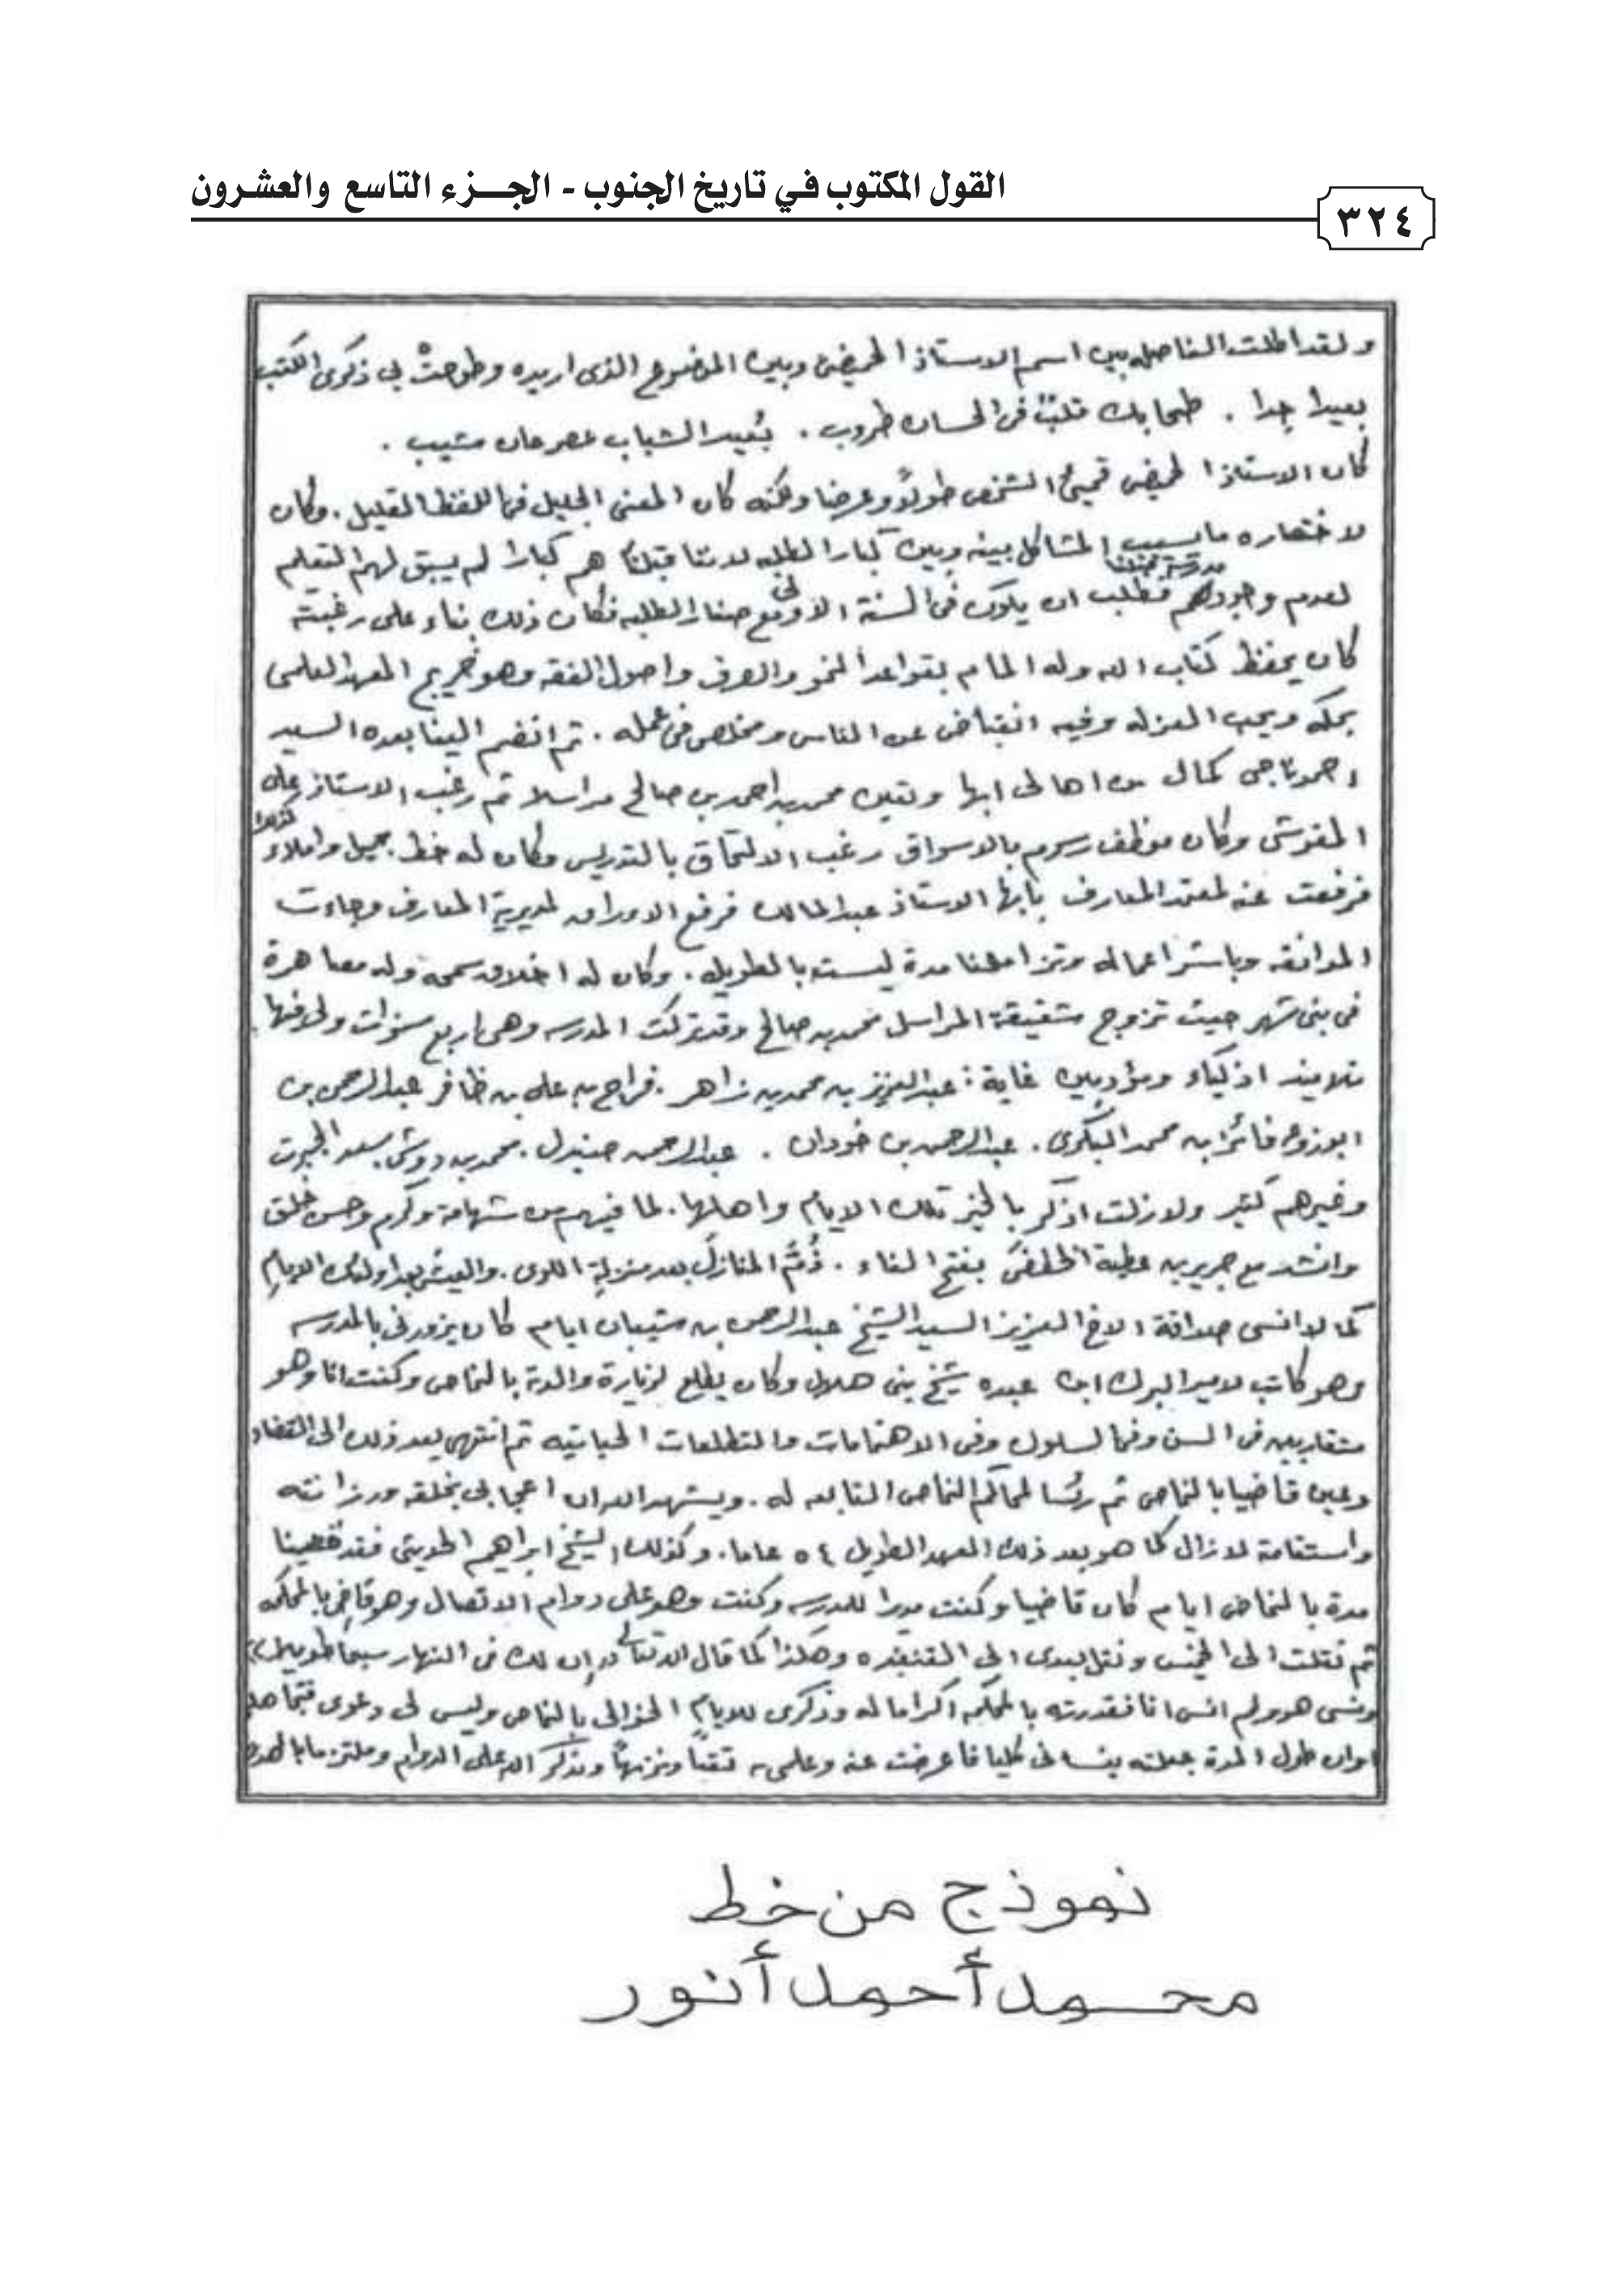 القول المكتوب في تاريخ الجنوب - الجـــزء التاسع والعشرون
٣٢٤
ولقد اطلت الفاصله بين اسم الاستاذ الحميضى وبين الموضوع الذى اريده وطوحتْ بى ذكرى الكتب
بعيدا جدا . طحا بك قلبٌ فى الحسان طروب . بُعيد الشباب عصر حان مشيب .
كان الاستاذ الحميضى قميئ الشخص طولاً وعرضا ولكنه كان المعنى الجليل فى اللفظ القليل . وكان
لاختصاره ما يسبب المشاكل بينه وبين كبار الطلبه لاننا قبلنا هم كبارا لم يسبق لهم التعليم
لعدم وجود مدرسة قبلنا فطلب ان يكون فى السنة الاولى مع صغار الطلبه فكان ذلك بناء على رغبته
كان يحفظ كتاب الله وله المام بقواعد النحو والصرف واصول الفقه وهو خريج المعهد العلمى
بمكه ويحب العزله وفيه انقباض عن الناس ومخلص فى عمله . ثم انضم الينا بعده السيد
احمد ناجى كمال من اهالى ابها وتعين محمد بن احمد بن صالح مراسلا ثم رغب الاستاذ على
المقوشى وكان موظف رسوم بالاسواق رغب الالتحاق بالتدريس وكان له خط جميل واملاء كذلك
فرفعت عنه لمعتمد المعارف بابها الاستاذ عبد المالك فرفع الاوراق لمديرية المعارف وجاءت
الموافقه وباشر اعماله وتزاملنا مدة ليست بالطويله . وكان له اخلاق سمحه وله مصاهرة
فى بنى شهر حيث تزوج شقيقة المراسل محمد بن صالح وقد تركت المدرسه وهى اربع سنوات ولى فيها
تلاميذ اذكياء ومؤدبين غاية : عبدالعزيز بن محمد بن زاهر . فراج بن على بن ظافر عبدالرحمن بن
فائز ابن محمد البكرى . عبدالرحمن بن خودان . عبدالرحمن صنيدل . محمد بن سعد
وغيرهم كثير ولا زلت اذكر بالخير تلك الايام واهلها . لما فيهم من شهامة وكرم وحسن خلق
وانشد مع جرير بن عطية الخطفىَ بفتح الفاء . ذُمَّ المنازلَ بعد منزلةِ اللوى . والعيش بعد اولئك الايامِ
كما لا انسى صداقة الاخ العزيز السيد الشيخ عبدالرحمن بن شيبان ايام كان يزورنى بالمدرسه
وهو كاتب لامير البرك ابن عبده شيخ بنى هلال وكان يطلع لزيارة والدة بالنماص وكنت انا وهو
متقاربين فى السن وفى السلوك وفى الاهتمامات والتطلعات الحياتيه ثم انتهى بعد ذلك الى القضاء
وعين قاضيا بالنماص ثم رئسا لمحاكم النماص التابعه له . ويشهد الله ان اعجابى بخلقه ورزانته
واستقامة لازال كما هو بعد ذلك العهد الطويل ٥٤ عاما . وكذلك الشيخ ابراهيم فقد قضينا
مدة بالنماص ايام كان قاضيا وكنت مديرا للمدرسه وكنت وهو على دوام الاتصال وهو قاضى بالمحكمه
ثم نقلت الى الخميس ونقل بعدى الى القنفذه وهكذا كما قال الله تعالى (( ان لك فى النهار سبحا طويلا ))
ونسى هو ولم انس انا فقد زرته بالمحكمه اكراما له وذكرى للايام الخوالى بالنماص وليس لى دعوى
وان طول المدة جعلته ينسانى كليا فاعرضت عنه وعلمى به تقياً ونزيهاً ويذكر الله على الدوام وملتزما بالهدوء
نموذج من خط
محمد أحمد أنور